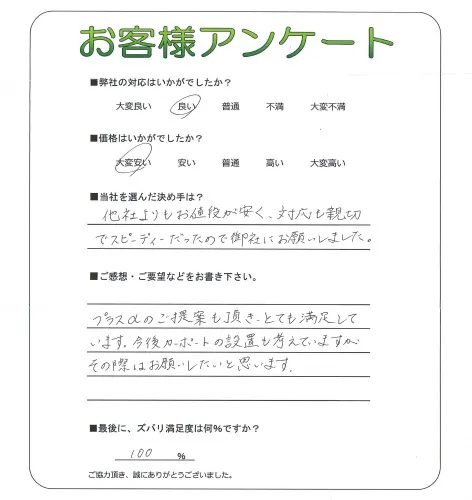 お客様アンケート
■弊社の対応はいかがでしたか？
大変良い 良い 普通 不満 大変不満
■価格はいかがでしたか？
大変安い 安い 普通 高い 大変高い
■当社を選んだ決め手は？
他社よりもお値段が安く、対応も親切
でスピーディーだったので御社にお願いしました。
■ご感想・ご要望などをお書き下さい。
プラスαのご提案も頂き、とても満足して
います。今後カーポートの設置も考えていますが
その際はお願いしたいと思います。
■最後に、ズバリ満足度は何%ですか？
100 %
ご協力頂き、誠にありがとうございました。